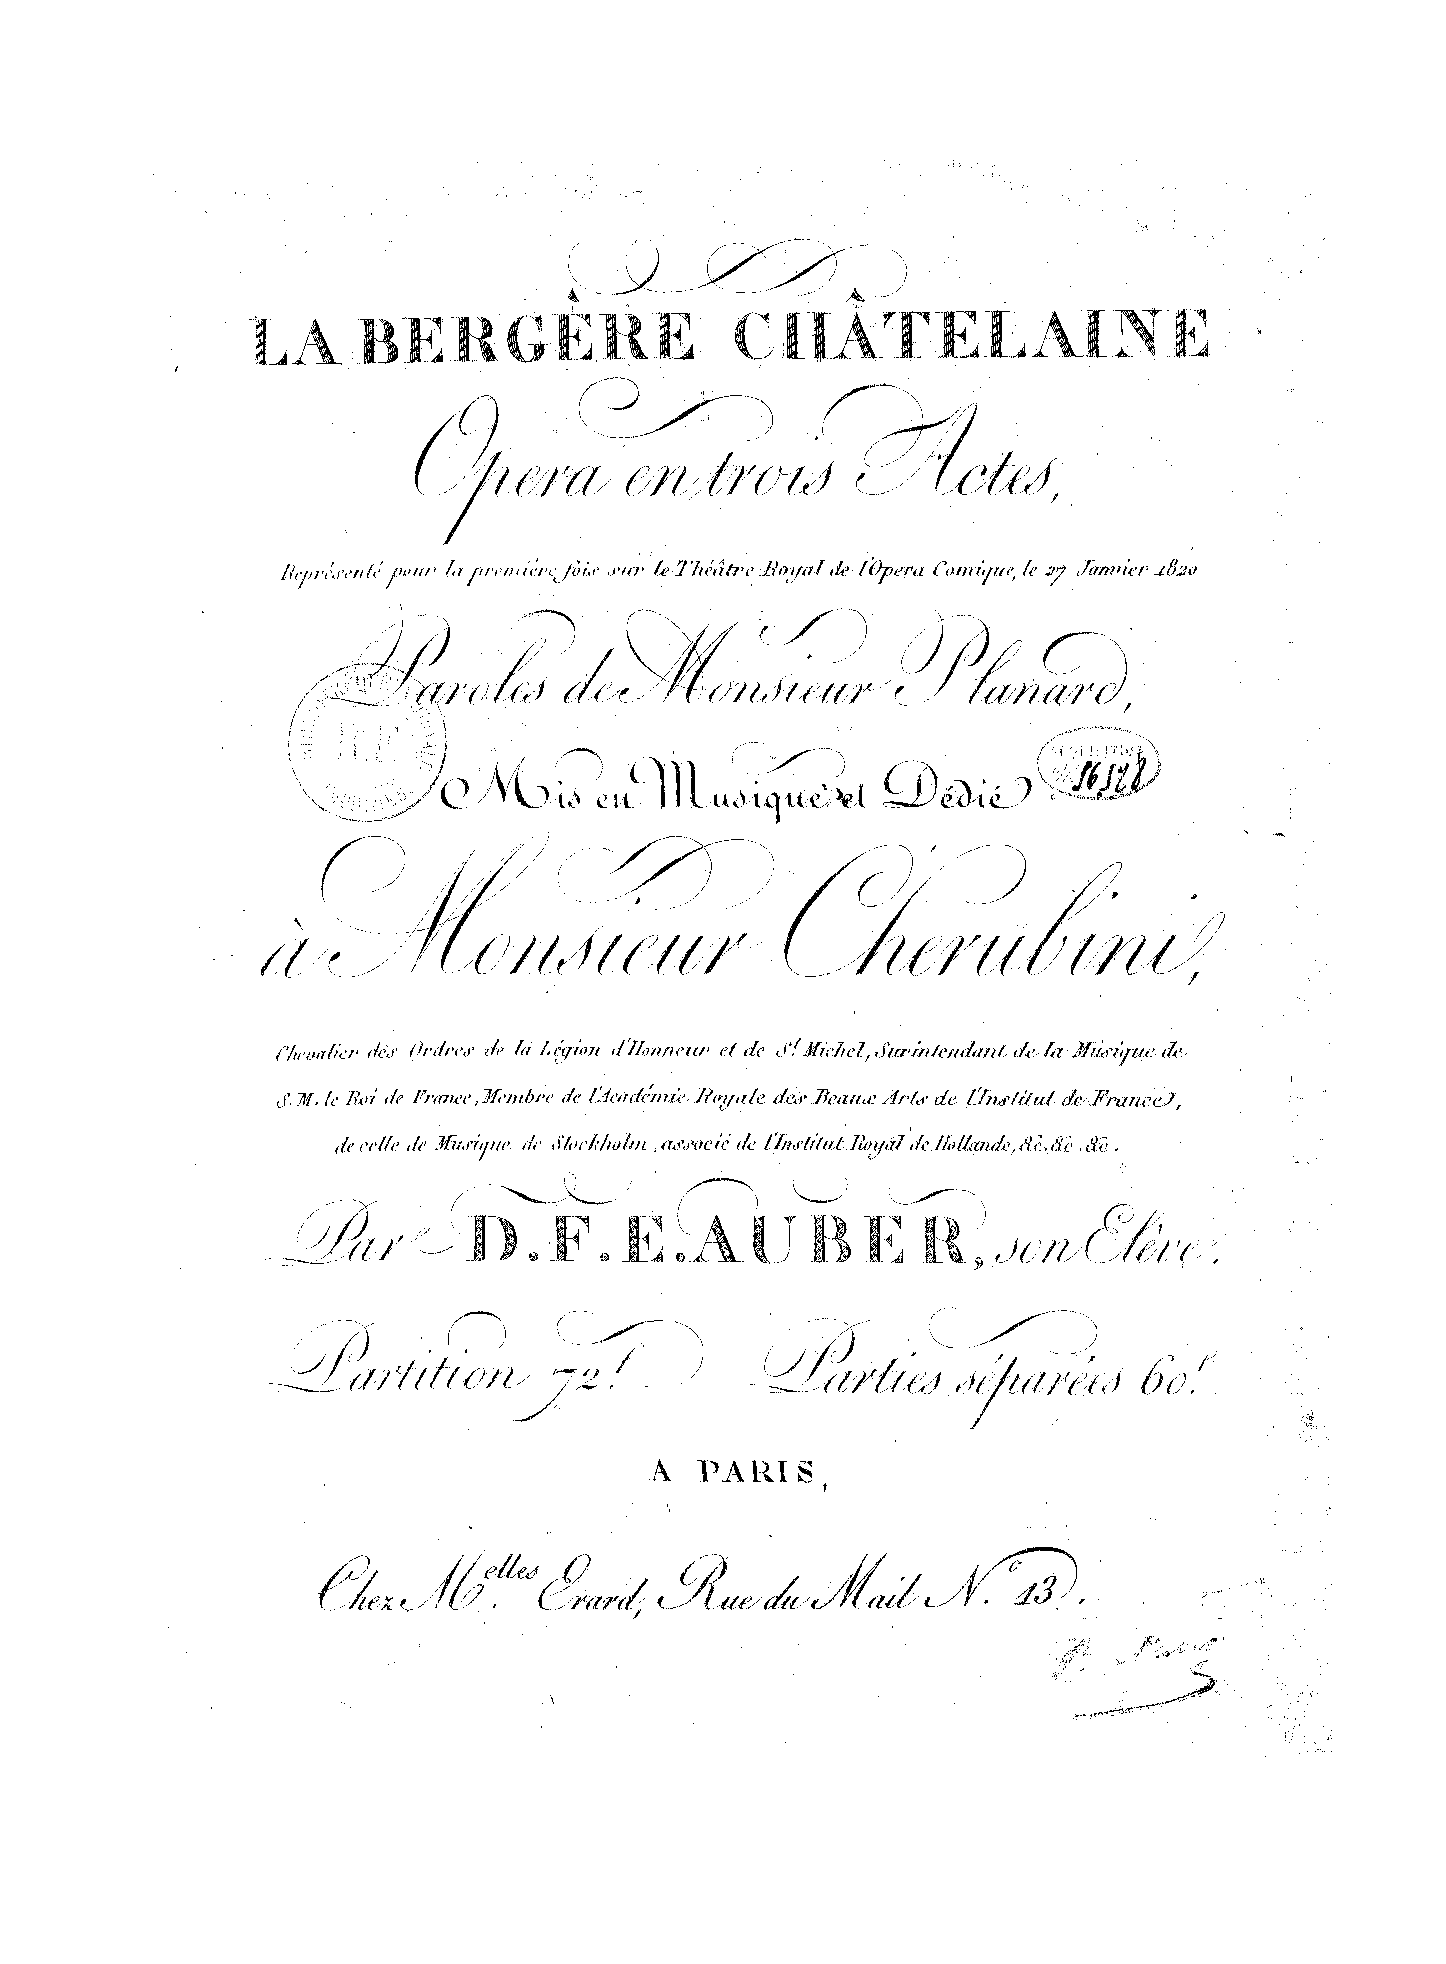 LA BERGÈRE CHÂTELAINE
Opera en trois Actes,
Représenté pour la première fois sur le Théâtre Royal de l'Opera Comique, le 27 Janvier 1820
Paroles de Monsieur Planard,
R.F.
Mis en Musique et Dédié
à Monsieur Cherubini,
Chevalier des Ordres de la Légion d'Honneur et de St. Michel, Surintendant de la Musique de
S. M. le Roi de France, Membre de l'Académie Royale des Beaux Arts de l'Institut de France,
de celle de Musique de Stockholm, associé de l'Institut Royal de Hollande, &c. &c. &c.
Par D. F. E. AUBER, son Elève.
Partition 72f. Parties séparées 60f.
A PARIS,
Chez Melles. Erard, Rue du Mail No. 13.